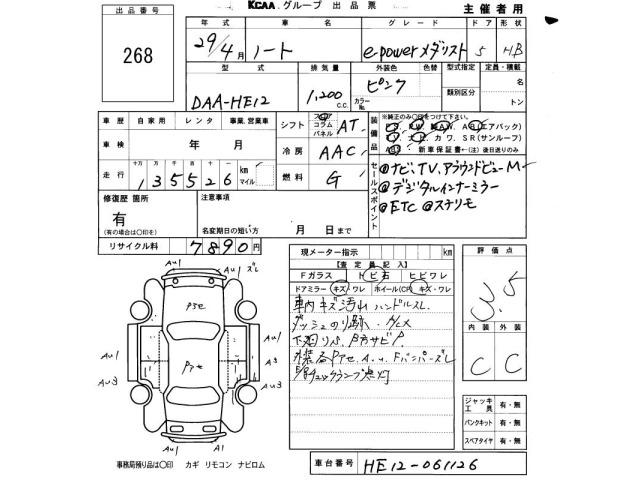 KCAA グループ 出品票
主催者用
出品番号
268
年式 車名 グレード ドア 形状
29/4月 ノート e-powerメダリスト 5 HB
型式 排気量 外装色 色替 型式指定 定員・積載
DAA-HE12 1,200 C.C. ピンク カラーNo. 類別区分 名
トン
車歴 自家用 レンタ 事業、営業車
シフト コラム パネル AT
装備品 ※純正のみ○印を付けて下さい。
エアバック)
カワ、SR(サンルーフ)
新車保証書←(注)後日送りのみ
車検 年 月
冷房 AAC
走行 十万 万 千 百 十 135526 km マイル
燃料 G
セールスポイント
@ナビ、TV、アラウンドビューM
@デジタルインナーミラー
@ETC @ステリモ
修復歴 箇所
有
(有の場合は○印を)
注意事項
名変期日の短い方 月 日まで
リサイクル料 7890円
現メーター指示 km
【査定員記入】
Fガラス トビ石 ヒビワレ
ドアミラー キズ・ワレ ホイール(CP)キズ・ワレ
車内キズ汚れ ハンドルスレ
ダッシュのり跡
評価点
3.5
内装 外装
C C
ジャッキ 工具 有・無
パンクキット 有・無
スペアタイヤ 有・無
AU1 AU1 ズレ
Pアセ
AU1 AU1
Pアセ
A3
AU3 AU3
AU1 A1
事務局預り品は○印 カギ リモコン ナビロム
車台番号 HE12-061126